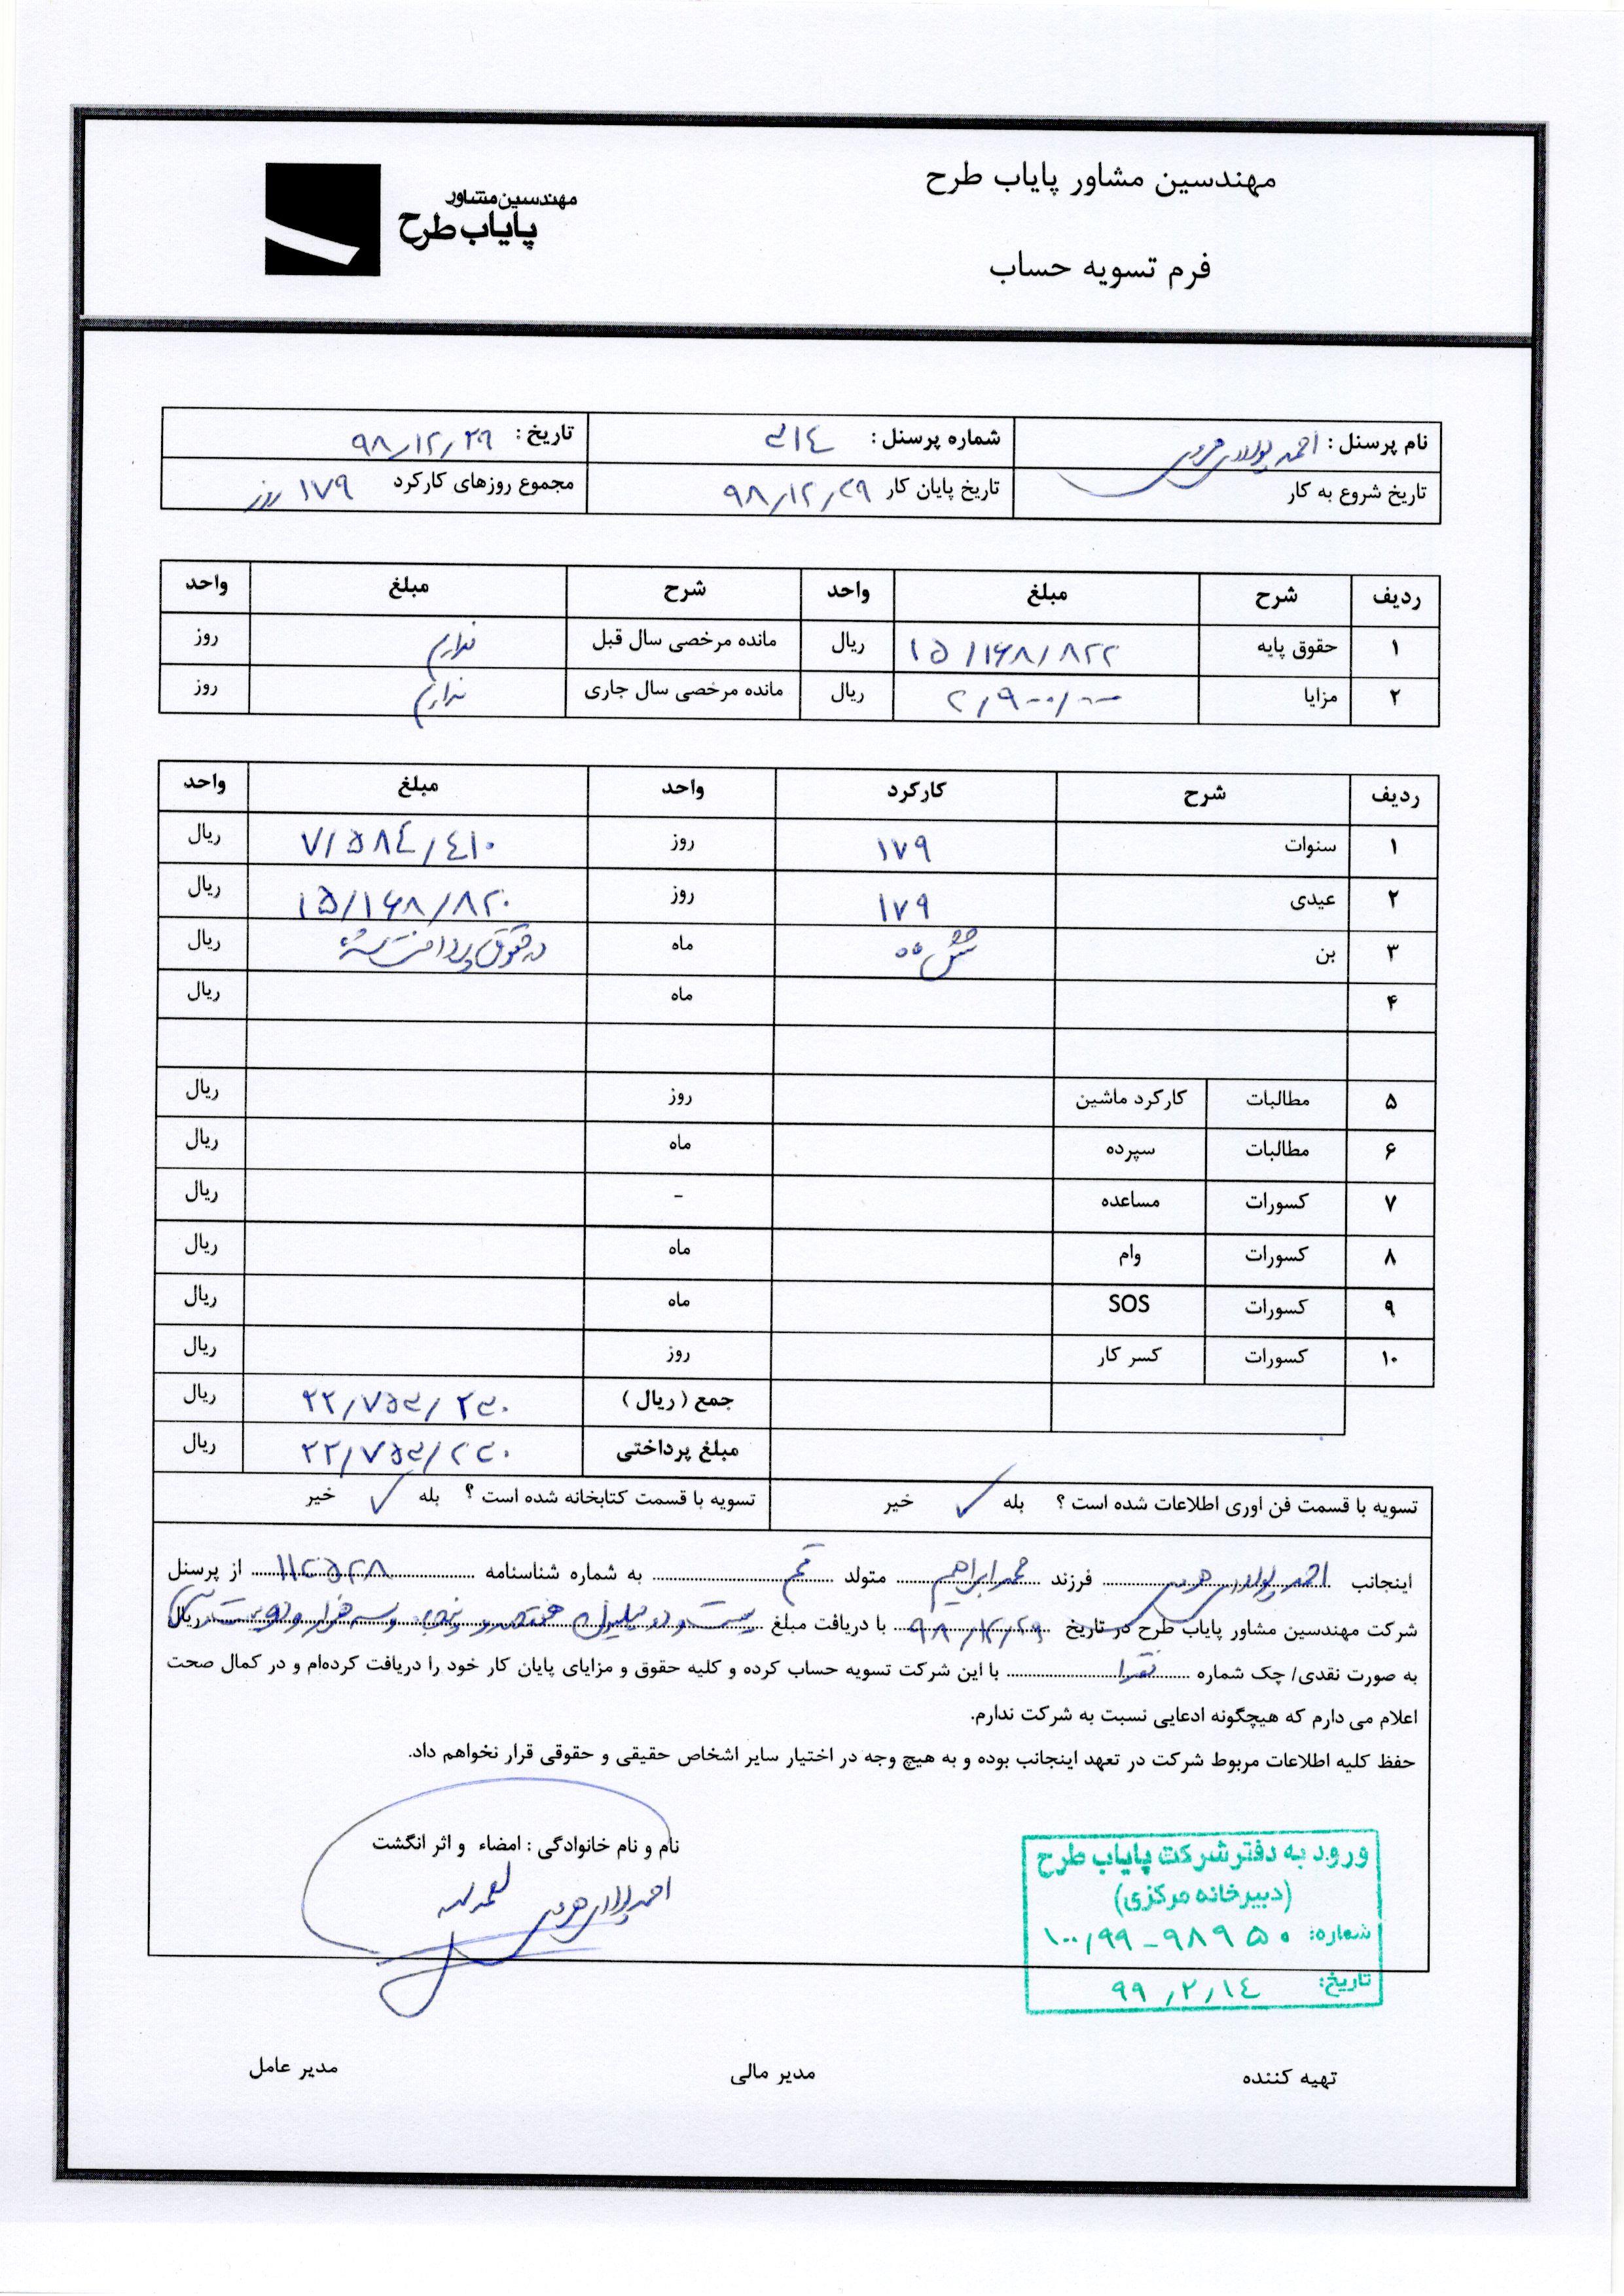 مهندسین مشاور پایاب طرح
مهندسین مشاور
پایاب طرح
فرم تسویه حساب
نام پرسنل : احمد شماره پرسنل : ۳۱۴ تاریخ : ۹۸/۱۲/۲۹
تاریخ شروع به کار تاریخ پایان کار ۹۸/۱۲/۲۹ مجموع روزهای کارکرد ۱۷۹ روز
ردیف شرح مبلغ واحد شرح مبلغ واحد
۱ حقوق پایه ۱۵/۱۶۸/۸۲۲ ریال مانده مرخصی سال قبل ندارم روز
۲ مزایا ۲/۹۰۰/۰۰۰ ریال مانده مرخصی سال جاری ندارم روز
ردیف شرح کارکرد واحد مبلغ واحد
۱ سنوات ۱۷۹ روز ۷/۵۸۴/۴۱۰ ریال
۲ عیدی ۱۷۹ روز ۱۵/۱۶۸/۸۲۰ ریال
۳ بن شش ماه ماه در حقوق پرداخت شده ریال
۴ ماه ریال
۵ مطالبات کارکرد ماشین روز ریال
۶ مطالبات سپرده ماه ریال
۷ کسورات مساعده - ریال
۸ کسورات وام ماه ریال
۹ کسورات SOS ماه ریال
۱۰ کسورات کسر کار روز ریال
جمع ( ریال ) ۲۲/۷۵۳/۲۳۰ ریال
مبلغ پرداختی ۲۲/۷۵۳/۲۳۰ ریال
تسویه با قسمت فن اوری اطلاعات شده است ؟ بله ✓ خیر تسویه با قسمت کتابخانه شده است ؟ بله ✓ خیر
اینجانب احمد فرزند محمد ابراهیم متولد قم به شماره شناسنامه از پرسنل
شرکت مهندسین مشاور پایاب طرح در تاریخ ۹۸/۱۲/۲۹ با دریافت مبلغ بیست و دو میلیون هفتصد و پنجاه و سه هزار و دویست و سی ریال
به صورت نقدی/ چک شماره نقدا با این شرکت تسویه حساب کرده و کلیه حقوق و مزایای پایان کار خود را دریافت کرده‌ام و در کمال صحت
اعلام می دارم که هیچگونه ادعایی نسبت به شرکت ندارم.
حفظ کلیه اطلاعات مربوط شرکت در تعهد اینجانب بوده و به هیچ وجه در اختیار سایر اشخاص حقیقی و حقوقی قرار نخواهم داد.
نام و نام خانوادگی : امضاء و اثر انگشت
احمد
ورود به دفتر شرکت پایاب طرح
(دبیرخانه مرکزی)
شماره: ۱۰۰/۹۹-۹۸۹۵۰
تاریخ: ۹۹/۲/۱۴
تهیه کننده مدیر مالی مدیر عامل